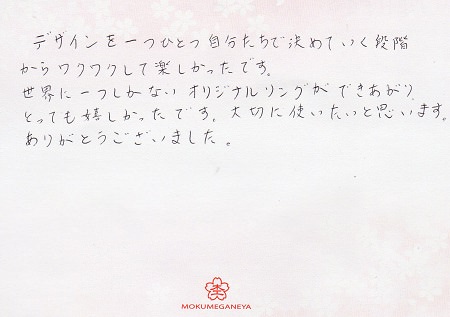 デザインを一つひとつ自分たちで決めていく段階
からワクワクして楽しかったです。
世界に一つしかないオリジナルリングができあがり、
とっても嬉しかったです。大切に使いたいと思います。
ありがとうございました。
MOKUMEGANEYA